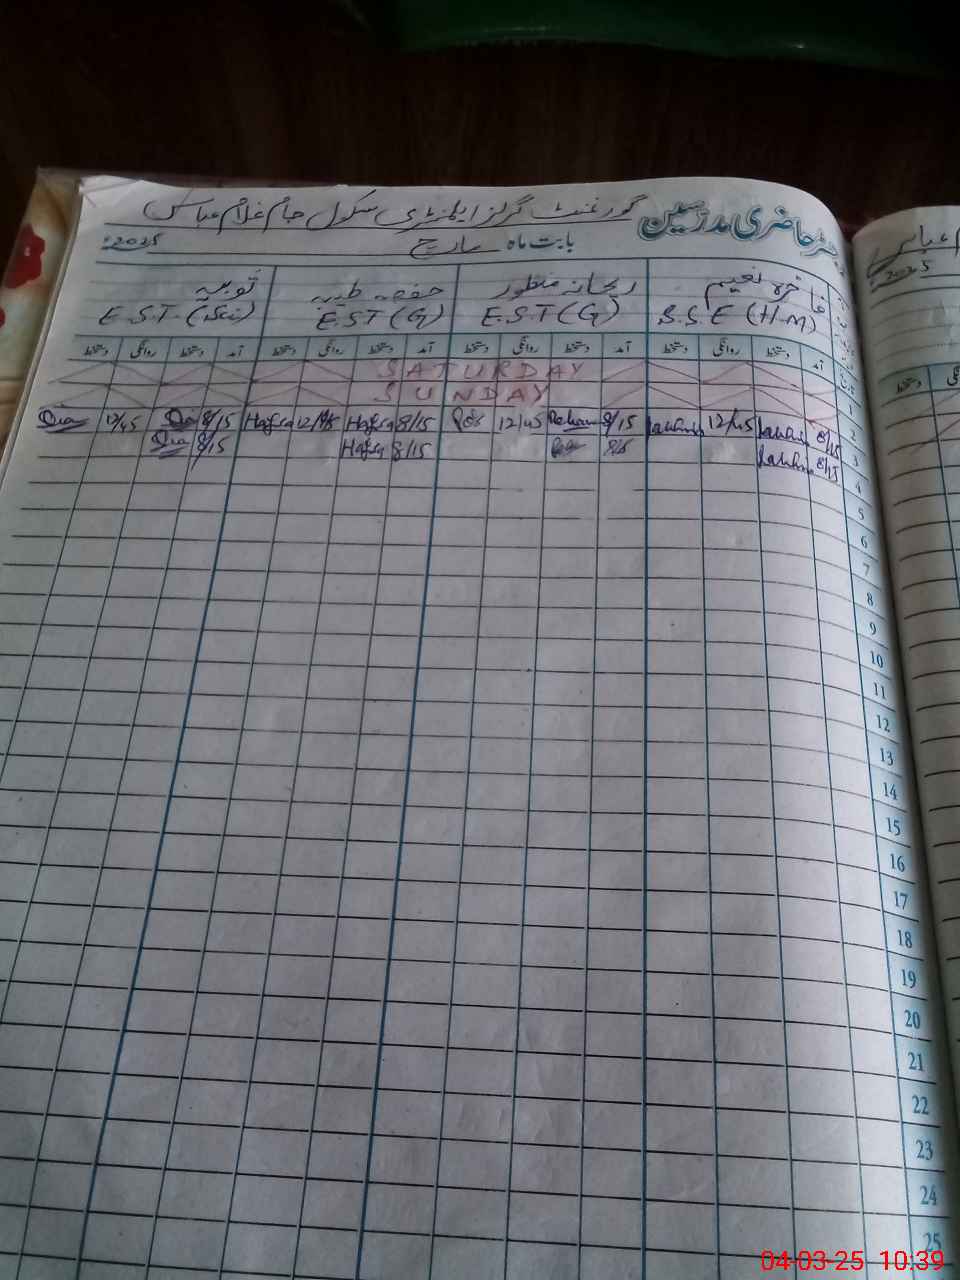 رجسٹر حاضری مدرسین گورنمنٹ گرلز ایلمنٹری سکول جام غلام عباس
بابت ماہ مارچ 2025ء
فاخرہ نعیم ریحانہ منظور حفصہ طیبہ ثوبیہ
S.S.E (H.M) E.S.T (G) E.S.T (G) E.S.T. (Sci)
تاریخ آمد دستخط روانگی دستخط آمد دستخط روانگی دستخط آمد دستخط روانگی دستخط آمد دستخط روانگی دستخط
SATURDAY 1
SUNDAY 2
8/15 12/45 8/15 12/45 8/15 Hafsa 12/45 Hafsa 8/15 12/45 3
8/15 8/15 8/15 Hafsa 8/15 4
5
6
7
8
9
10
11
12
13
14
15
16
17
18
19
20
21
22
23
24
25
عباس
2025
دستخط
04-03-25 10:39